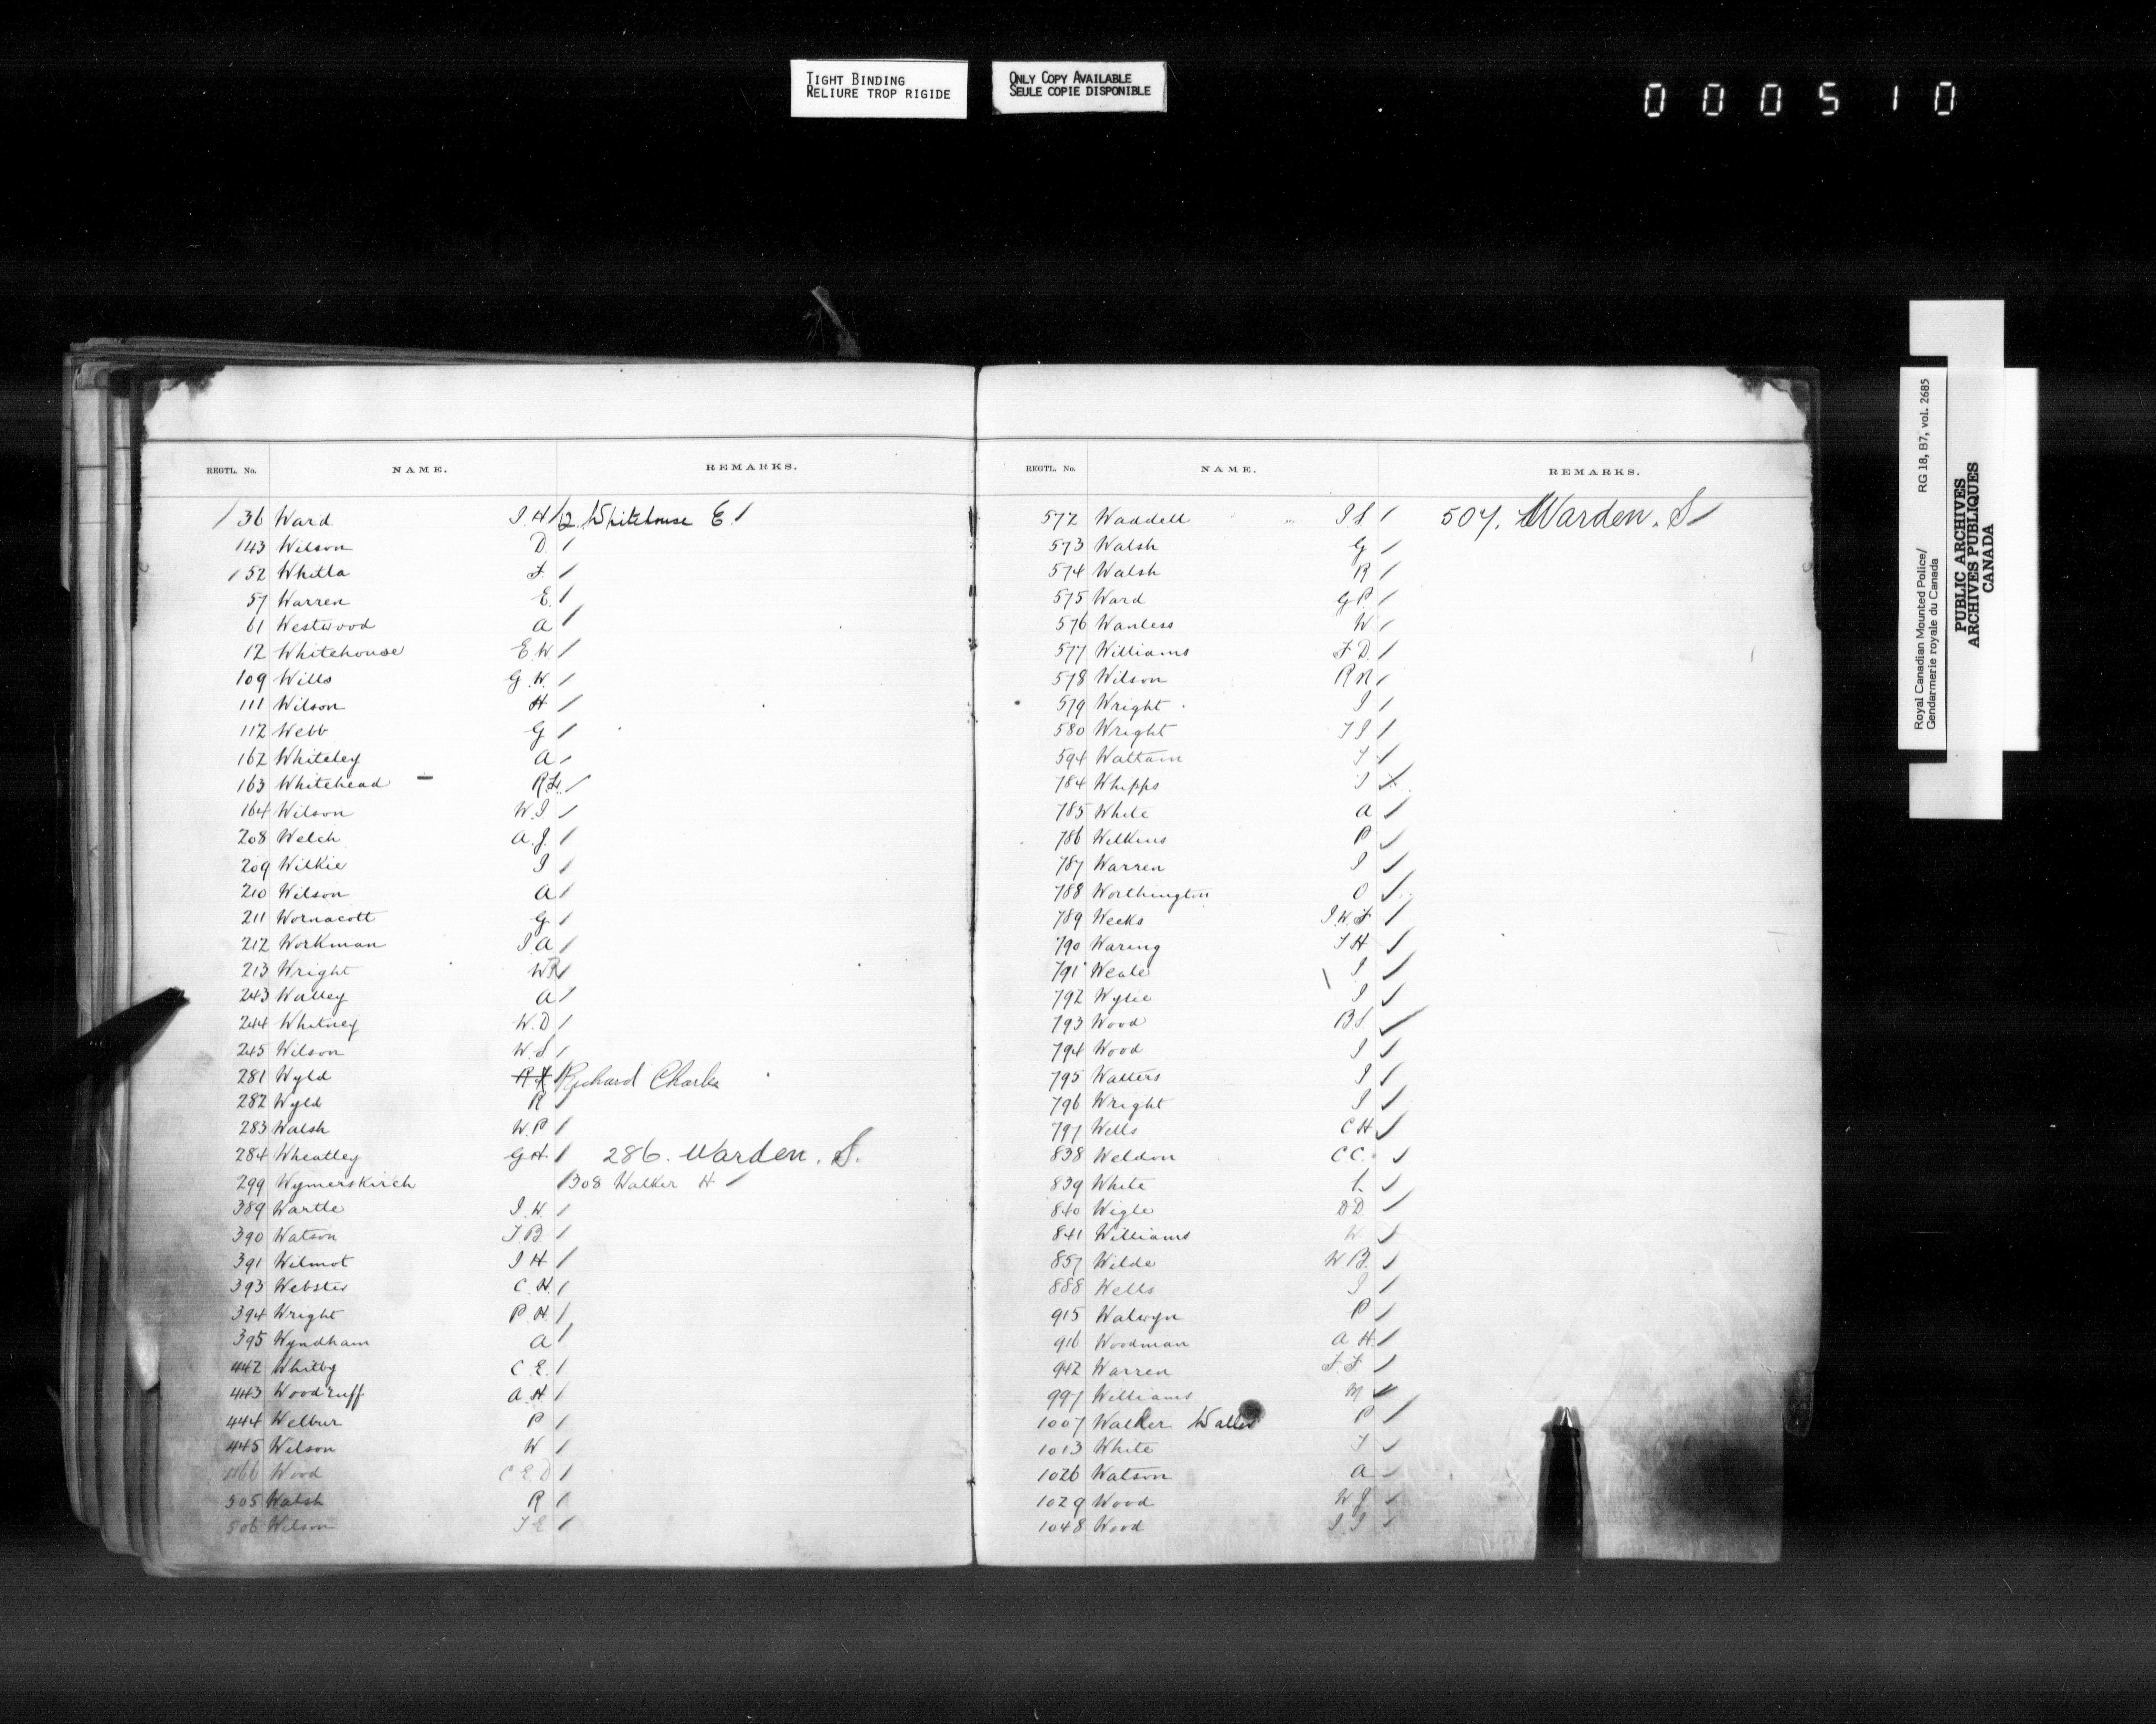 TIGHT BINDING
RELIURE TROP RIGIDE
ONLY COPY AVAILABLE
SEULE COPIE DISPONIBLE
000510
REGTL. No. NAME. REMARKS.
36 Ward J.H 12 Whitehouse E.
143 Wilson D.
152 Whitla F.
57 Warren E.
61 Westwood A
12 Whitehouse E.W.
109 Wills G.W.
111 Wilson H
112 Webb G
162 Whiteley A
163 Whitehead R.H.
164 Wilson W.J.
208 Welch A.J.
209 Wilkie J
210 Wilson A
211 Wornacott G.
212 Workman J.A
213 Wright WR
243 Walley A
244 Whitney W.D
245 Wilson W.S
281 Wyld Richard Charles
282 Wyld R
283 Walsh W.P
284 Wheatley G.H 286. Warden. S.
299 Wymerskirch 308 Walker H
389 Wartle J.W.
390 Watson T.B
391 Wilmot J H
393 Webster C.H.
394 Wright P.H.
395 Wyndham A
442 Whitby C.E.
443 Woodruff A.H
444 Welbur P
445 Wilson W
466 Wood C E D
505 Walsh R
506 Wilson T E
REGTL. No. NAME. REMARKS.
572 Waddell J.S 507. Warden. S
573 Walsh G
574 Walsh R
575 Ward G P.
576 Wanless W
577 Williams F D.
578 Wilson R N
579 Wright J
580 Wright T J
594 Waltam T
784 Whipps J
785 White A
786 Wilkins P
787 Warren J
788 Worthington O
789 Weeks J.W.F
790 Waring T H
791 Weale J
792 Wylie J
793 Wood B S.
794 Wood J
795 Walters J
796 Wright J
797 Wells C H
838 Weldon C C.
839 White
840 Wigle D D.
841 Williams W
857 Wilde W B.
888 Wells J
915 Walwyn P
916 Woodman A H.
942 Warren F.F
997 Williams M
1007 Walker Waller P
1013 White T
1026 Watson A
1029 Wood W J
1048 Wood J.J
Royal Canadian Mounted Police/
Gendarmerie royale du Canada
RG 18, B7, vol. 2685
PUBLIC ARCHIVES
ARCHIVES PUBLIQUES
CANADA